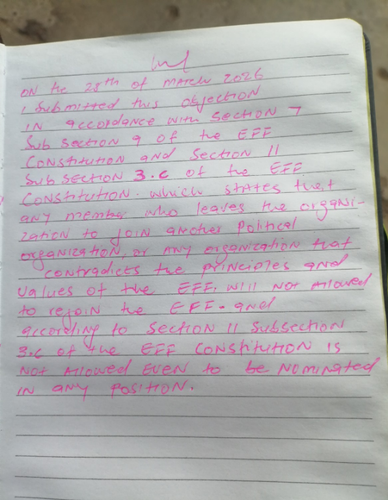 ON the 28th of March 2026
I submitted this objection
IN accordance with section 7
Sub section 9 of the EFF
Constitution and section 11
Sub section 3.c of the EFF
Constitution. which states that
any member who leaves the organi-
zation to join another political
organization, or any organization that
contradicts the principles and
values of the EFF. will not allowed
to rejoin the EFF - and
according to section 11 subsection
3.c of the EFF Constitution is
not allowed even to be nominated
in any position.